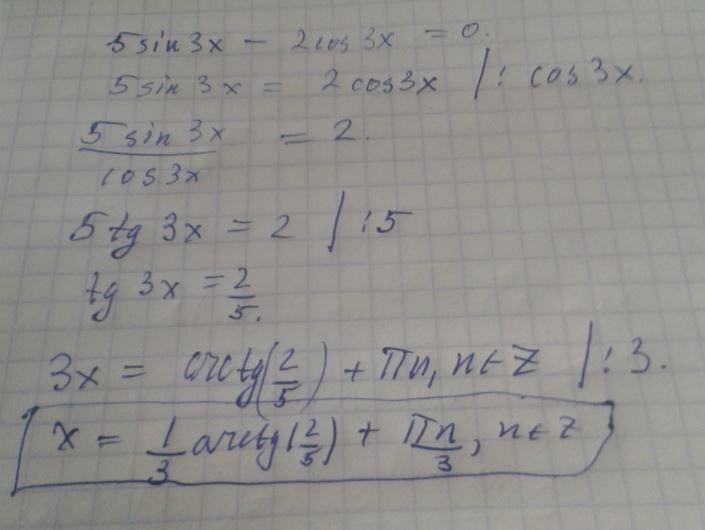 5 sin 3x - 2 cos 3x = 0.
5 sin 3x = 2 cos 3x | : cos 3x.
5 sin 3x / cos 3x = 2.
5 tg 3x = 2 | : 5
tg 3x = 2/5.
3x = arctg(2/5) + πn, n ∈ Z | : 3.
x = 1/3 arctg(2/5) + πn/3, n ∈ Z